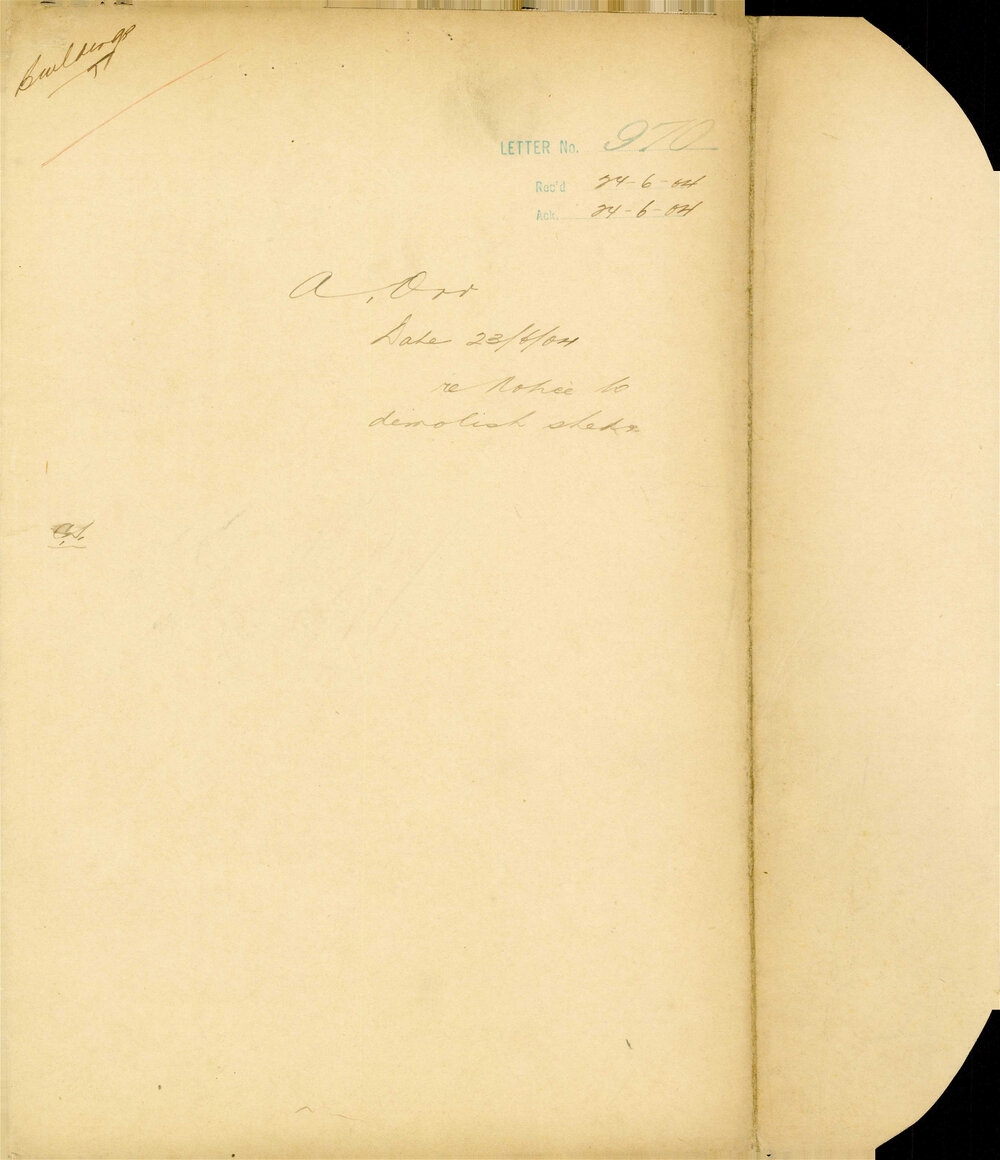 Buildings
LETTER No. 970
Rec'd 24-6-04
Ack. 24-6-04
A. Orr
Date 23/6/04
re Notice to
demolish sheds